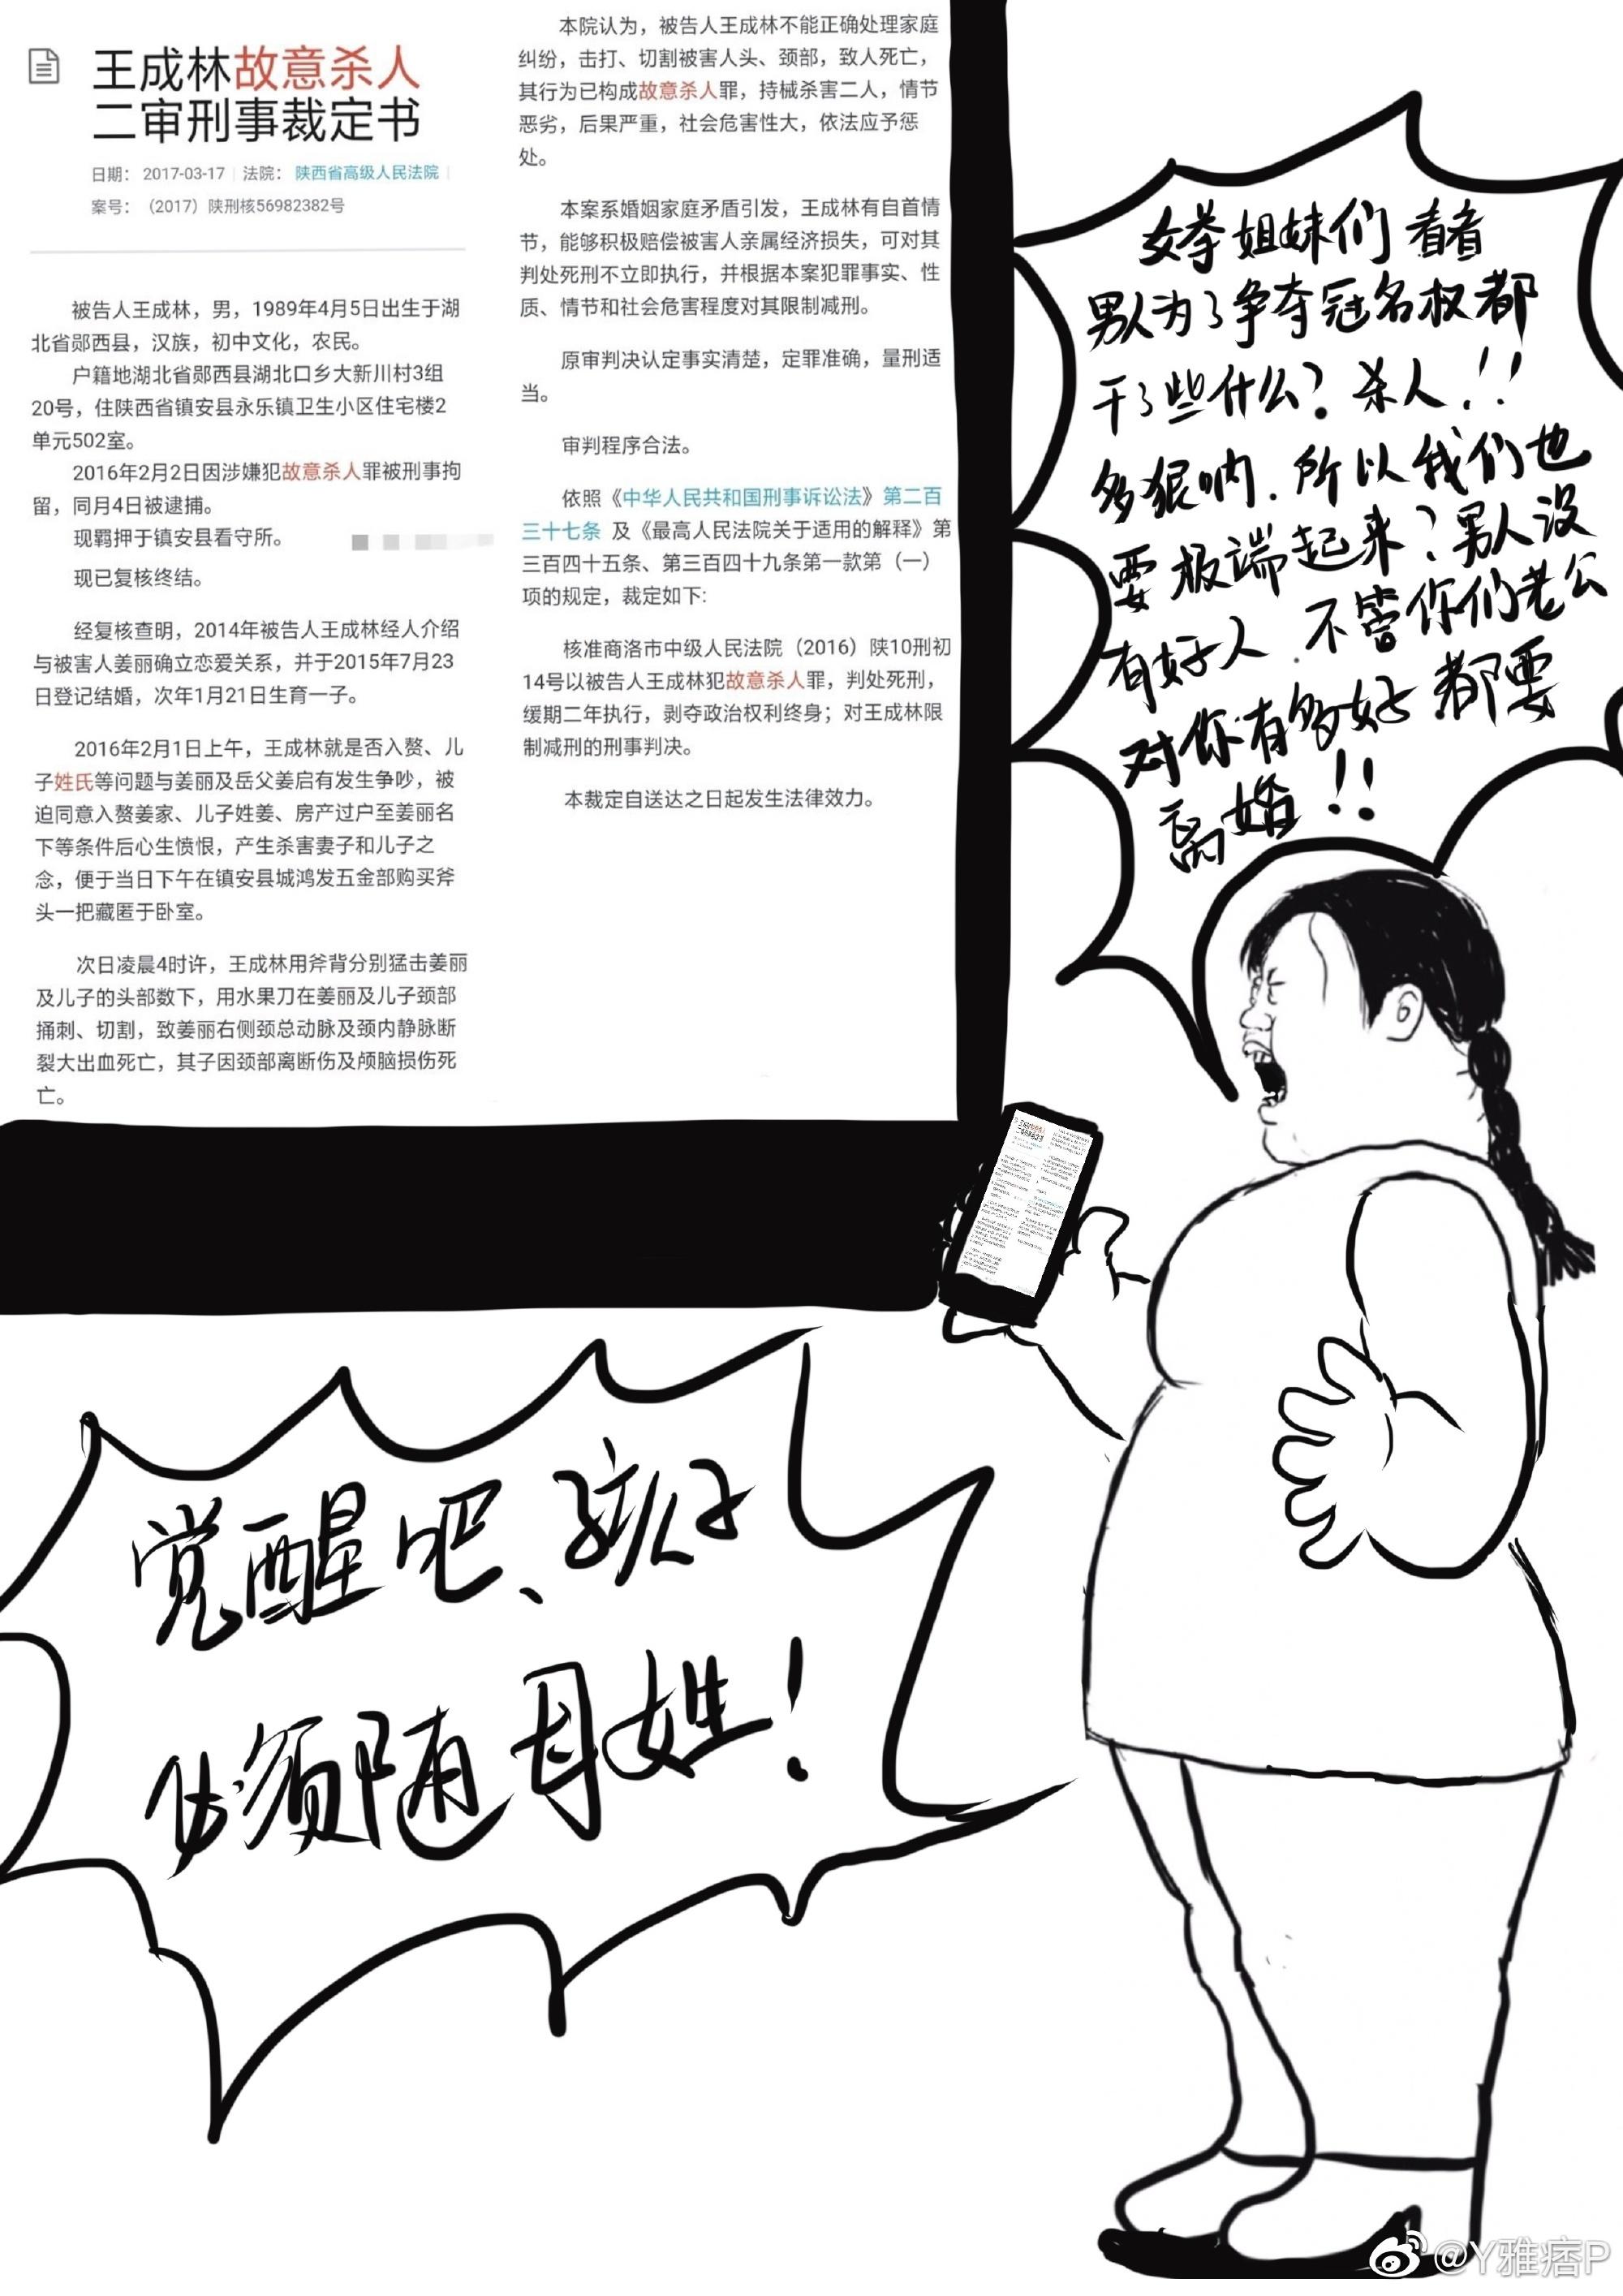 王成林故意杀人
二审刑事裁定书
日期： 2017-03-17 | 法院： 陕西省高级人民法院 |
案号：（2017）陕刑核56982382号
被告人王成林，男，1989年4月5日出生于湖
北省郧西县，汉族，初中文化，农民。
户籍地湖北省郧西县湖北口乡大新川村3组
20号，住陕西省镇安县永乐镇卫生小区住宅楼2
单元502室。
2016年2月2日因涉嫌犯故意杀人罪被刑事拘
留，同月4日被逮捕。
现羁押于镇安县看守所。
现已复核终结。
经复核查明，2014年被告人王成林经人介绍
与被害人姜丽确立恋爱关系，并于2015年7月23
日登记结婚，次年1月21日生育一子。
2016年2月1日上午，王成林就是否入赘、儿
子姓氏等问题与姜丽及岳父姜启有发生争吵，被
迫同意入赘姜家、儿子姓姜、房产过户至姜丽名
下等条件后心生愤恨，产生杀害妻子和儿子之
念，便于当日下午在镇安县城鸿发五金部购买斧
头一把藏匿于卧室。
次日凌晨4时许，王成林用斧背分别猛击姜丽
及儿子的头部数下，用水果刀在姜丽及儿子颈部
捅刺、切割，致姜丽右侧颈总动脉及颈内静脉断
裂大出血死亡，其子因颈部离断伤及颅脑损伤死
亡。
本院认为，被告人王成林不能正确处理家庭
纠纷，击打、切割被害人头、颈部，致人死亡，
其行为已构成故意杀人罪，持械杀害二人，情节
恶劣，后果严重，社会危害性大，依法应予惩
处。
本案系婚姻家庭矛盾引发，王成林有自首情
节，能够积极赔偿被害人亲属经济损失，可对其
判处死刑不立即执行，并根据本案犯罪事实、性
质、情节和社会危害程度对其限制减刑。
原审判决认定事实清楚，定罪准确，量刑适
当。
审判程序合法。
依照《中华人民共和国刑事诉讼法》第二百
三十七条 及《最高人民法院关于适用的解释》第
三百四十五条、第三百四十九条第一款第（一）
项的规定，裁定如下:
核准商洛市中级人民法院（2016）陕10刑初
14号以被告人王成林犯故意杀人罪，判处死刑，
缓期二年执行，剥夺政治权利终身；对王成林限
制减刑的刑事判决。
本裁定自送达之日起发生法律效力。
女拳姐妹们 看看
男人为了争夺冠名权都
干了些什么？杀人！！
多狠呐.所以我们也
要极端起来？男人没
有好人 不管你们老公
对你有多好 都要
离婚！！
觉醒吧、孩子
必须随母姓！
@Y雅痞P